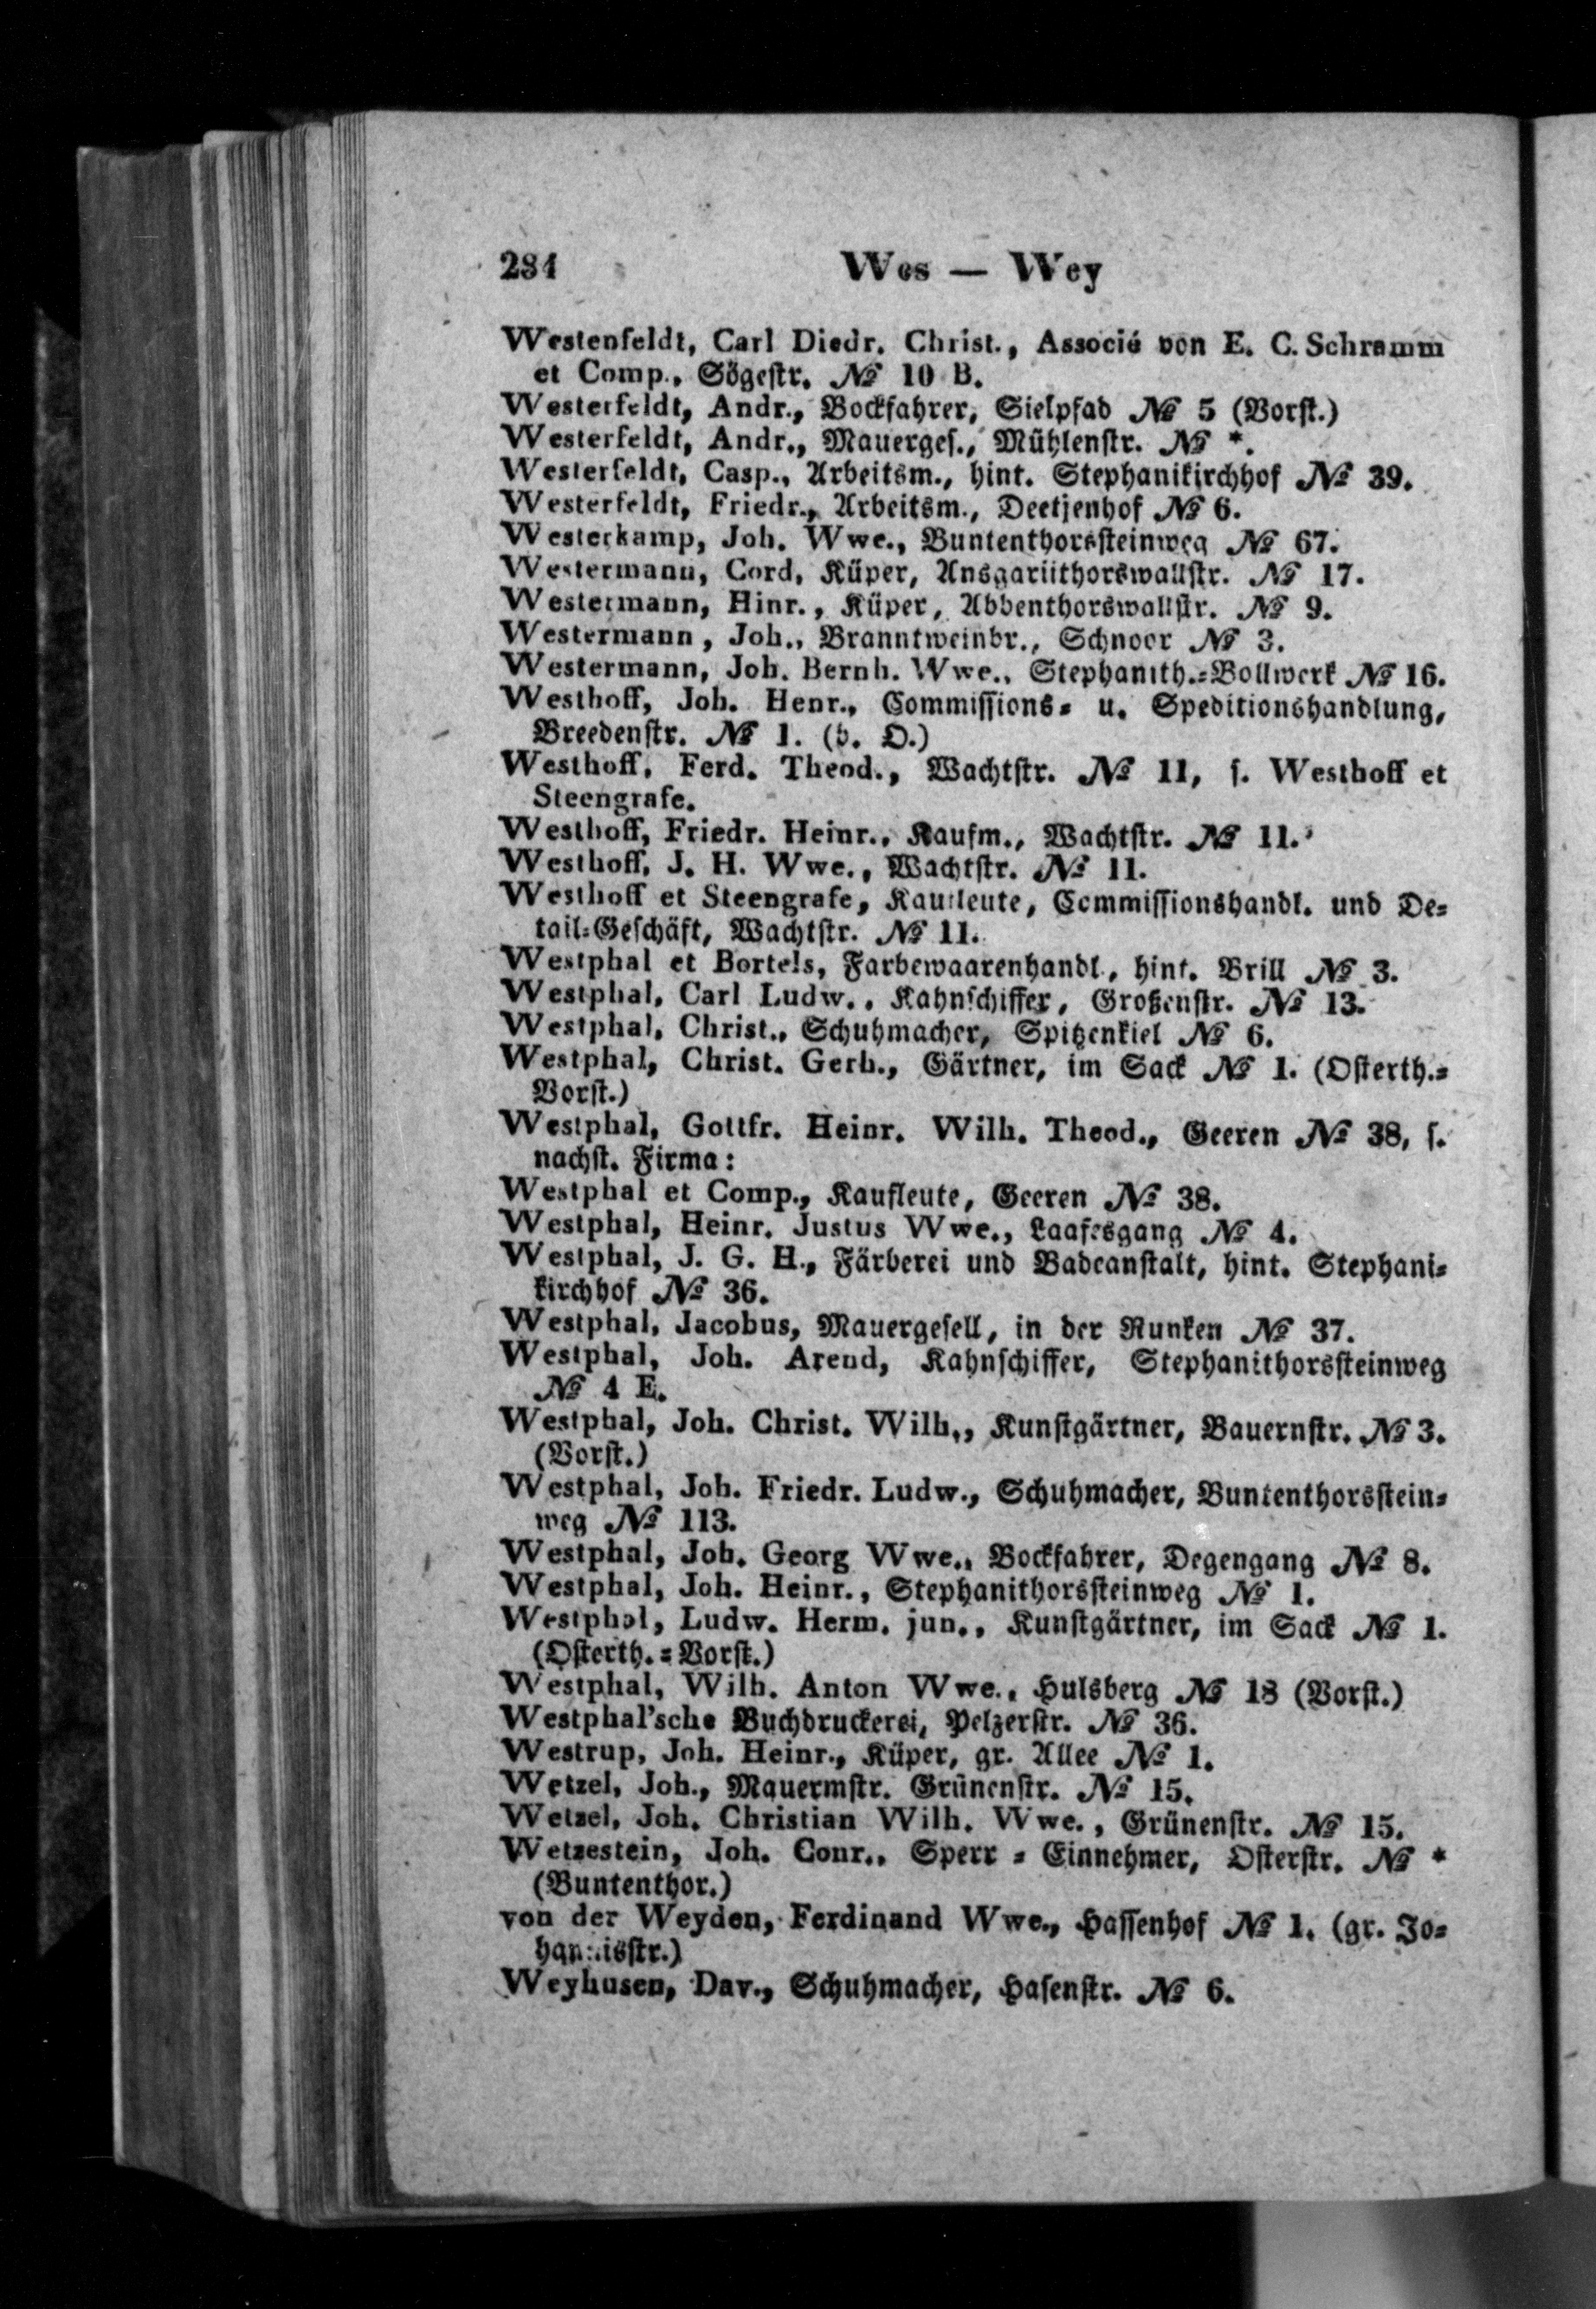 284 Wes — Wey
Westenfeldt, Carl Diedr. Christ., Associé von E. C. Schramm
et Comp., Sögestr. № 10 B.
Westerfeldt, Andr., Bockfahrer, Sielpfad № 5 (Vorst.)
Westerfeldt, Andr., Mauerges., Mühlenstr. № *.
Westerfeldt, Casp., Arbeitsm., hint. Stephanikirchhof № 39.
Westerfeldt, Friedr., Arbeitsm., Deetjenhof № 6.
Westerkamp, Joh. Wwe., Buntenthorssteinweg № 67.
Westermann, Cord, Küper, Ansgariithorswallstr. № 17.
Westermann, Hinr., Küper, Abbenthorswallstr. № 9.
Westermann, Joh., Branntweinbr., Schnoor № 3.
Westermann, Joh. Bernh. Wwe., Stephanith.=Bollwerk № 16.
Westhoff, Joh. Henr., Commissions= u. Speditionshandlung,
Breedenstr. № 1. (b. D.)
Westhoff, Ferd. Theod., Wachtstr. № 11, s. Westhoff et
Steengrafe.
Westhoff, Friedr. Heinr., Kaufm., Wachtstr. № 11.
Westhoff, J. H. Wwe., Wachtstr. № 11.
Westhoff et Steengrafe, Kaufleute, Commissionshandl. und De=
tail=Geschäft, Wachtstr. № 11.
Westphal et Bortels, Farbewaarenhandl., hint. Brill № 3.
Westphal, Carl Ludw., Kahnschiffer, Großenstr. № 13.
Westphal, Christ., Schuhmacher, Spitzenkiel № 6.
Westphal, Christ. Gerh., Gärtner, im Sack № 1. (Osterth.=
Vorst.)
Westphal, Gottfr. Heinr. Wilh. Theod., Geeren № 38, s.
nachst. Firma:
Westphal et Comp., Kaufleute, Geeren № 38.
Westphal, Heinr. Justus Wwe., Laafesgang № 4.
Westphal, J. G. H., Färberei und Badeanstalt, hint. Stephani=
kirchhof № 36.
Westphal, Jacobus, Mauergesell, in der Runken № 37.
Westphal, Joh. Arend, Kahnschiffer, Stephanithorssteinweg
№ 4 E.
Westphal, Joh. Christ. Wilh., Kunstgärtner, Bauernstr. № 3.
(Vorst.)
Westphal, Joh. Friedr. Ludw., Schuhmacher, Buntenthorsstein=
weg № 113.
Westphal, Joh. Georg Wwe., Bockfahrer, Degengang № 8.
Westphal, Joh. Heinr., Stephanithorssteinweg № 1.
Westphal, Ludw. Herm. jun., Kunstgärtner, im Sack № 1.
(Osterth.=Vorst.)
Westphal, Wilh. Anton Wwe., Hulsberg № 18 (Vorst.)
Westphal'sche Buchdruckerei, Pelzerstr. № 36.
Westrup, Joh. Heinr., Küper, gr. Allee № 1.
Wetzel, Joh., Mauermstr. Grünenstr. № 15.
Wetzel, Joh. Christian Wilh. Wwe., Grünenstr. № 15.
Wetzestein, Joh. Conr., Sperr=Einnehmer, Osterstr. № *
(Buntenthor.)
von der Weyden, Ferdinand Wwe., Hassenhof № 1. (gr. Jo=
hannisstr.)
Weyhusen, Dav., Schuhmacher, Hasenstr. № 6.